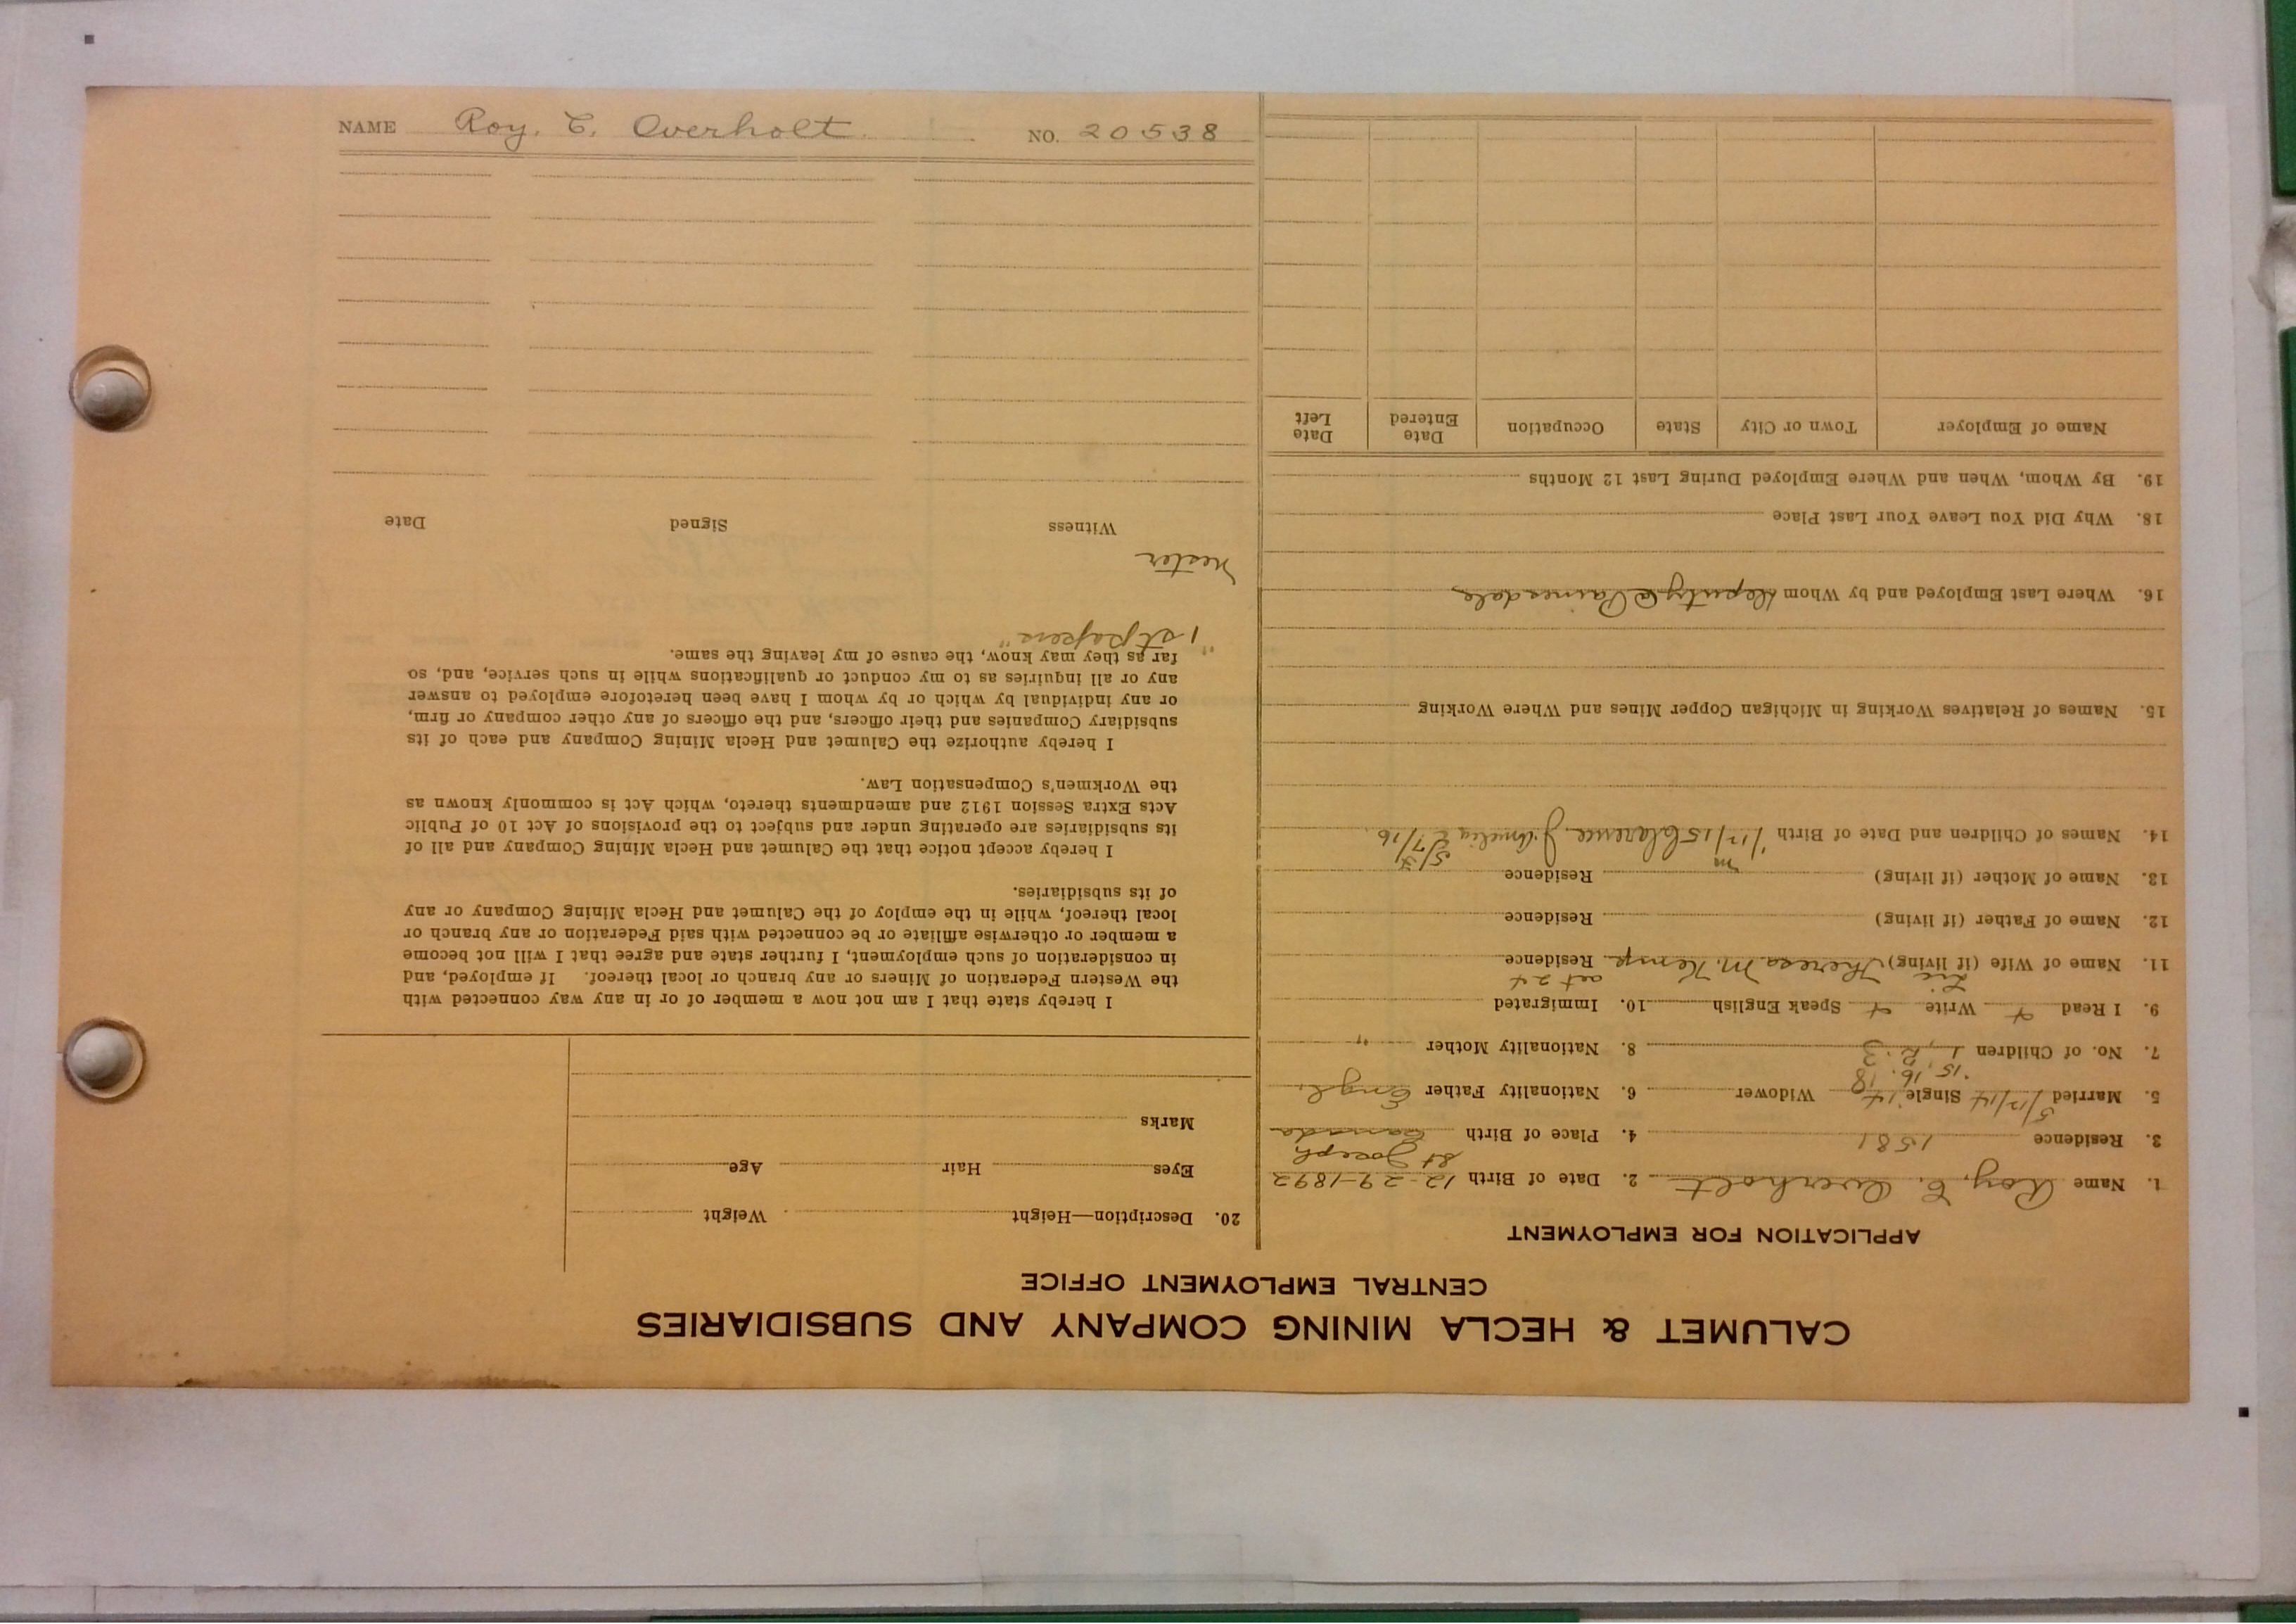 CALUMET & HECLA MINING COMPANY AND SUBSIDIARIES
CENTRAL EMPLOYMENT OFFICE
APPLICATION FOR EMPLOYMENT
1. Name Roy. C. Overholt 2. Date of Birth 12-29-1892
St Joseph
3. Residence 1581 4. Place of Birth Canada
5. Married 5/12/14 Single Widower 6. Nationality Father Engl.
15, 16. 18
7. No. of Children 1, 2. 3 8. Nationality Mother "
9. I Read + Write + Speak English 10. Immigrated
act 24
11. Name of Wife (if living) Theresa M. Kemp Residence
12. Name of Father (if living) Residence
13. Name of Mother (if living) Residence
14. Names of Children and Date of Birth 1/12/15 Clarence J. Amelia 7/16
15. Names of Relatives Working in Michigan Copper Mines and Where Working
16. Where Last Employed and by Whom Deputy @ Painesdale
18. Why Did You Leave Your Last Place
19. By Whom, When and Where Employed During Last 12 Months
Name of Employer Town or City State Occupation Date Entered Date Left
20. Description—Height Weight
Eyes Hair Age
Marks
I hereby state that I am not now a member of or in any way connected with
the Western Federation of Miners or any branch or local thereof. If employed, and
in consideration of such employment, I further state and agree that I will not become
a member or otherwise affiliate or be connected with said Federation or any branch or
local thereof, while in the employ of the Calumet and Hecla Mining Company or any
of its subsidiaries.
I hereby accept notice that the Calumet and Hecla Mining Company and all of
its subsidiaries are operating under and subject to the provisions of Act 10 of Public
Acts Extra Session 1912 and amendments thereto, which Act is commonly known as
the Workmen's Compensation Law.
I hereby authorize the Calumet and Hecla Mining Company and each of its
subsidiary Companies and their officers, and the officers of any other company or firm,
or any individual by which or by whom I have been heretofore employed to answer
any or all inquiries as to my conduct or qualifications while in such service, and, so
far as they may know, the cause of my leaving the same.
"1st papers"
Nester
Witness Signed Date
NAME Roy. C. Overholt. NO. 20538